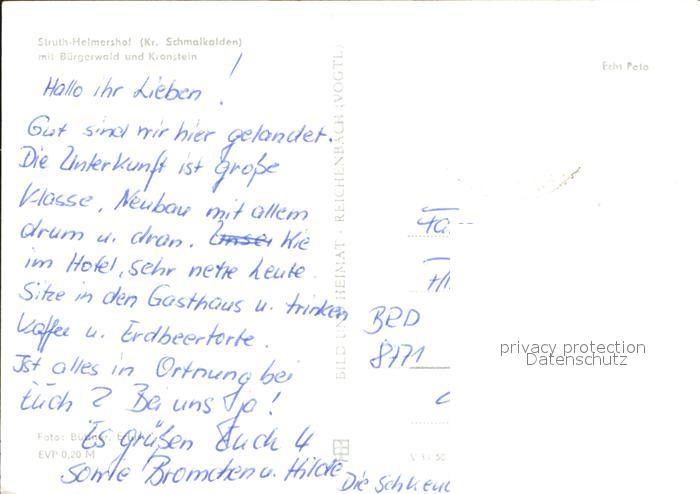 Struth-Helmershof (Kr. Schmalkalden)
mit Bürgerwald und Kronstein
Echt Foto
Hallo ihr Lieben!
Gut sind wir hier gelandet.
Die Unterkunft ist große
Klasse, Neubau mit allem
drum u. dran. Unser Wie
im Hotel, sehr nette Leute.
Sitze in den Gasthaus u. trinken
Kaffee u. Erdbeertorte.
Ist alles in Ortnung bei
Euch? Bei uns ja!
Es grüßen Euch 4
sowie Bromchen u. Hilde
Die
BILD UND HEIMAT · REICHENBACH (VOGTL)
Foto:
EVP 0,20 M
BRD
8171
privacy protection
Datenschutz